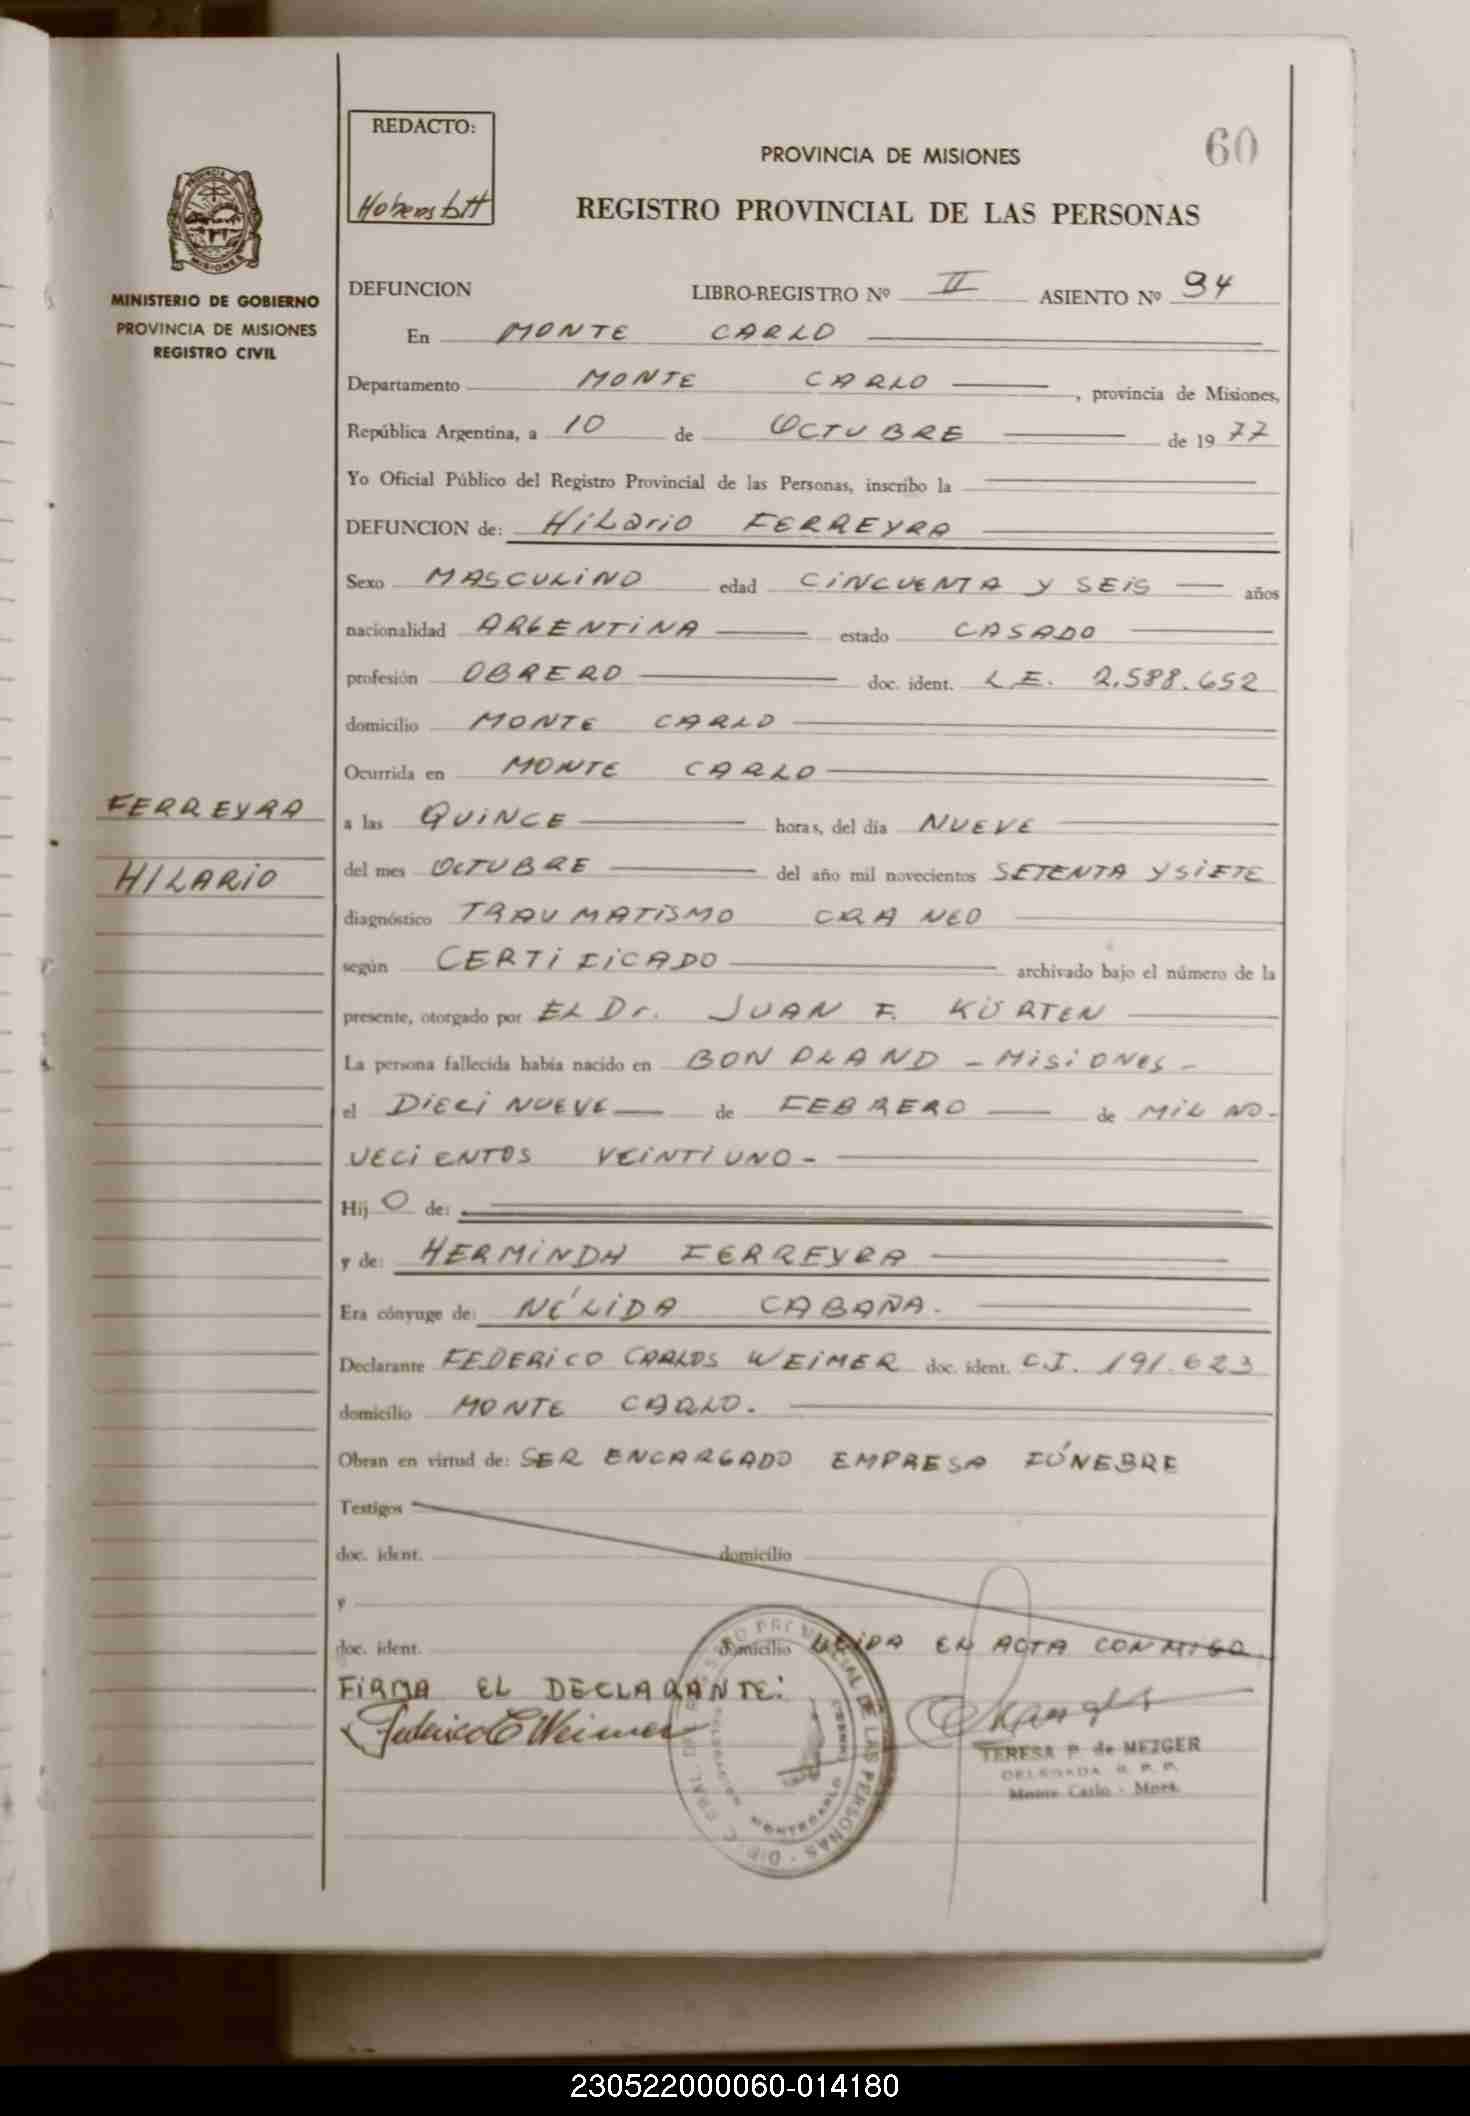 REDACTO:
60
PROVINCIA DE MISIONES
REGISTRO PROVINCIAL DE LAS PERSONAS
MISIONES
MINISTERIO DE GOBIERNO
PROVINCIA DE MISIONES
REGISTRO CIVIL
DEFUNCION LIBRO-REGISTRO Nº II ASIENTO Nº 94
En MONTE CARLO
Departamento MONTE CARLO, provincia de Misiones,
República Argentina, a 10 de OCTUBRE de 1977
Yo Oficial Público del Registro Provincial de las Personas, inscribo la
DEFUNCION de: HiLario FERREYRA
Sexo MASCULiNO edad CiNCUENTA y SEiS años
nacionalidad ARGENTiNA estado CASADO
profesión OBRERO doc. ident. L.E. 2.588.652
domicilio MONTE CARLO
Ocurrida en MONTE CARLO
FERREYRA
HILARIO
a las QUiNCE horas, del día NUEVE
del mes OCTUBRE del año mil novecientos SETENTA Y SiETE
diagnóstico TRAUMATiSMO CRANEO
según CERTiFiCADO archivado bajo el número de la
presente, otorgado por EL Dr. JUAN F. KÜRTEN
La persona fallecida había nacido en BONPLAND - MiSiONES -
el DiECiNUEVE de FEBRERO de MiL NO-
VECiENTOS VEiNTiUNO -
Hijo de:
y de: HERMiNDA FERREYRA
Era cónyuge de: NÉLiDA CABAÑA.
Declarante FEDERiCO CARLOS WEiMER doc. ident. C.I. 191.623
domicilio MONTE CARLO.
Obran en virtud de: SER ENCARGADO EMPRESA FÚNEBRE
Testigos
doc. ident. domicilio
y
doc. ident. domicilio LEiDA EN ACTA CONMiGO
FiRMA EL DECLARANTE:
Federico C Weimer
TERESA P. de MEZGER
DELEGADA R. P. P.
Monte Carlo - Mnes.
230522000060-014180